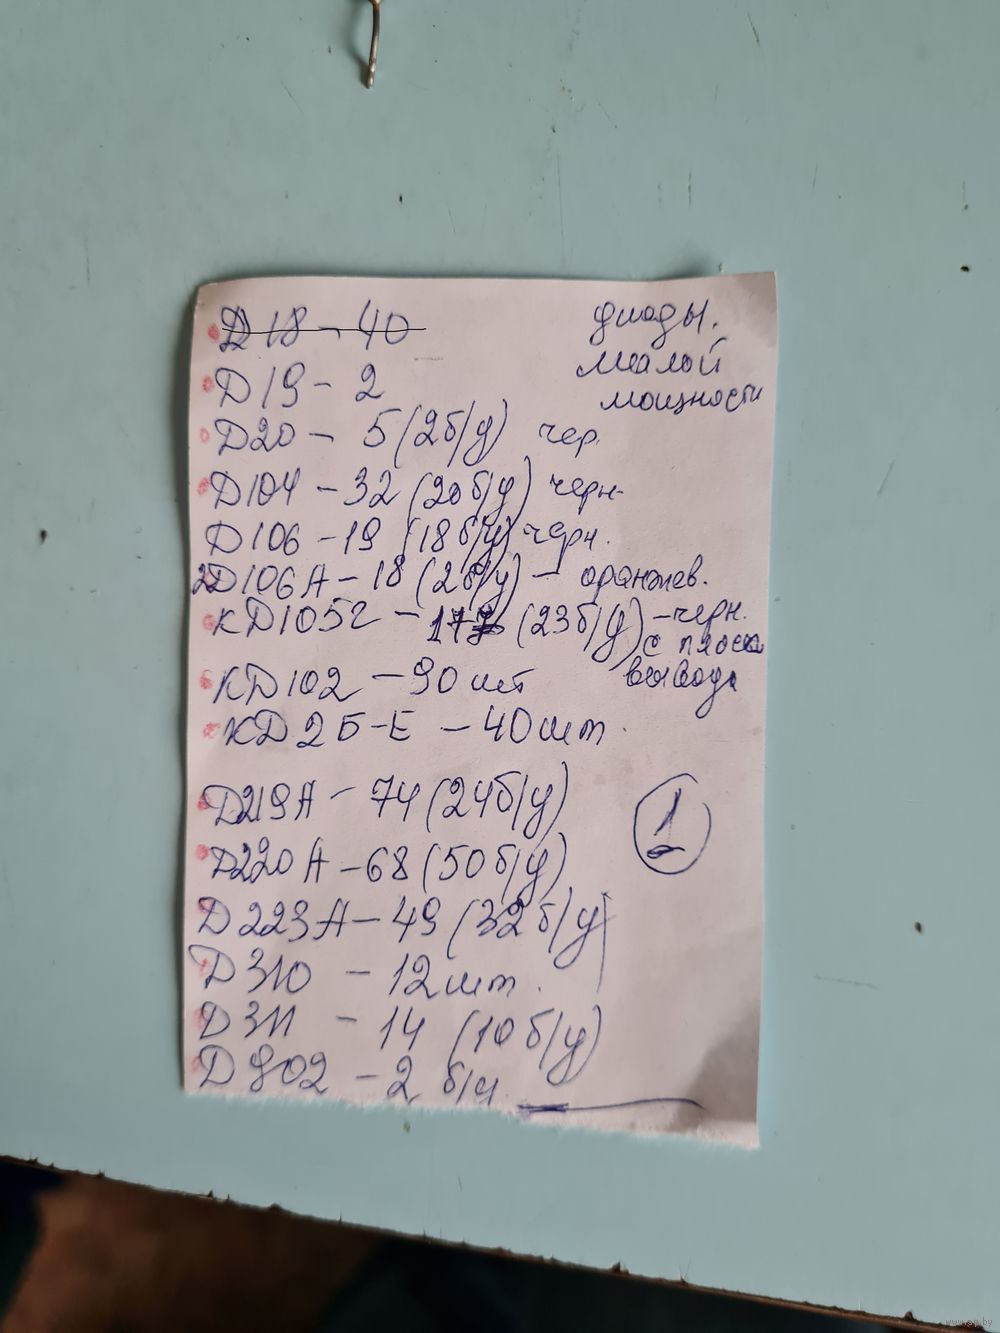 Д18 - 40
диоды.
малой
мощности
Д19 - 2
Д20 - 5 (2б/у) чер.
Д104 - 32 (20б/у) черн.
Д106 - 19 (18б/у) черн.
2Д106А - 18 (2б/у) - оранжев.
КД105г - 177 (23б/у) - черн.
с плоск
вывода
КД102 - 90 шт
КД2Б-Е - 40 шт.
Д219А - 74 (24б/у)
1
Д220А - 68 (50б/у)
Д223А - 49 (32б/у)
Д310 - 12 шт.
Д311 - 14 (10б/у)
Д902 - 2 б/у.